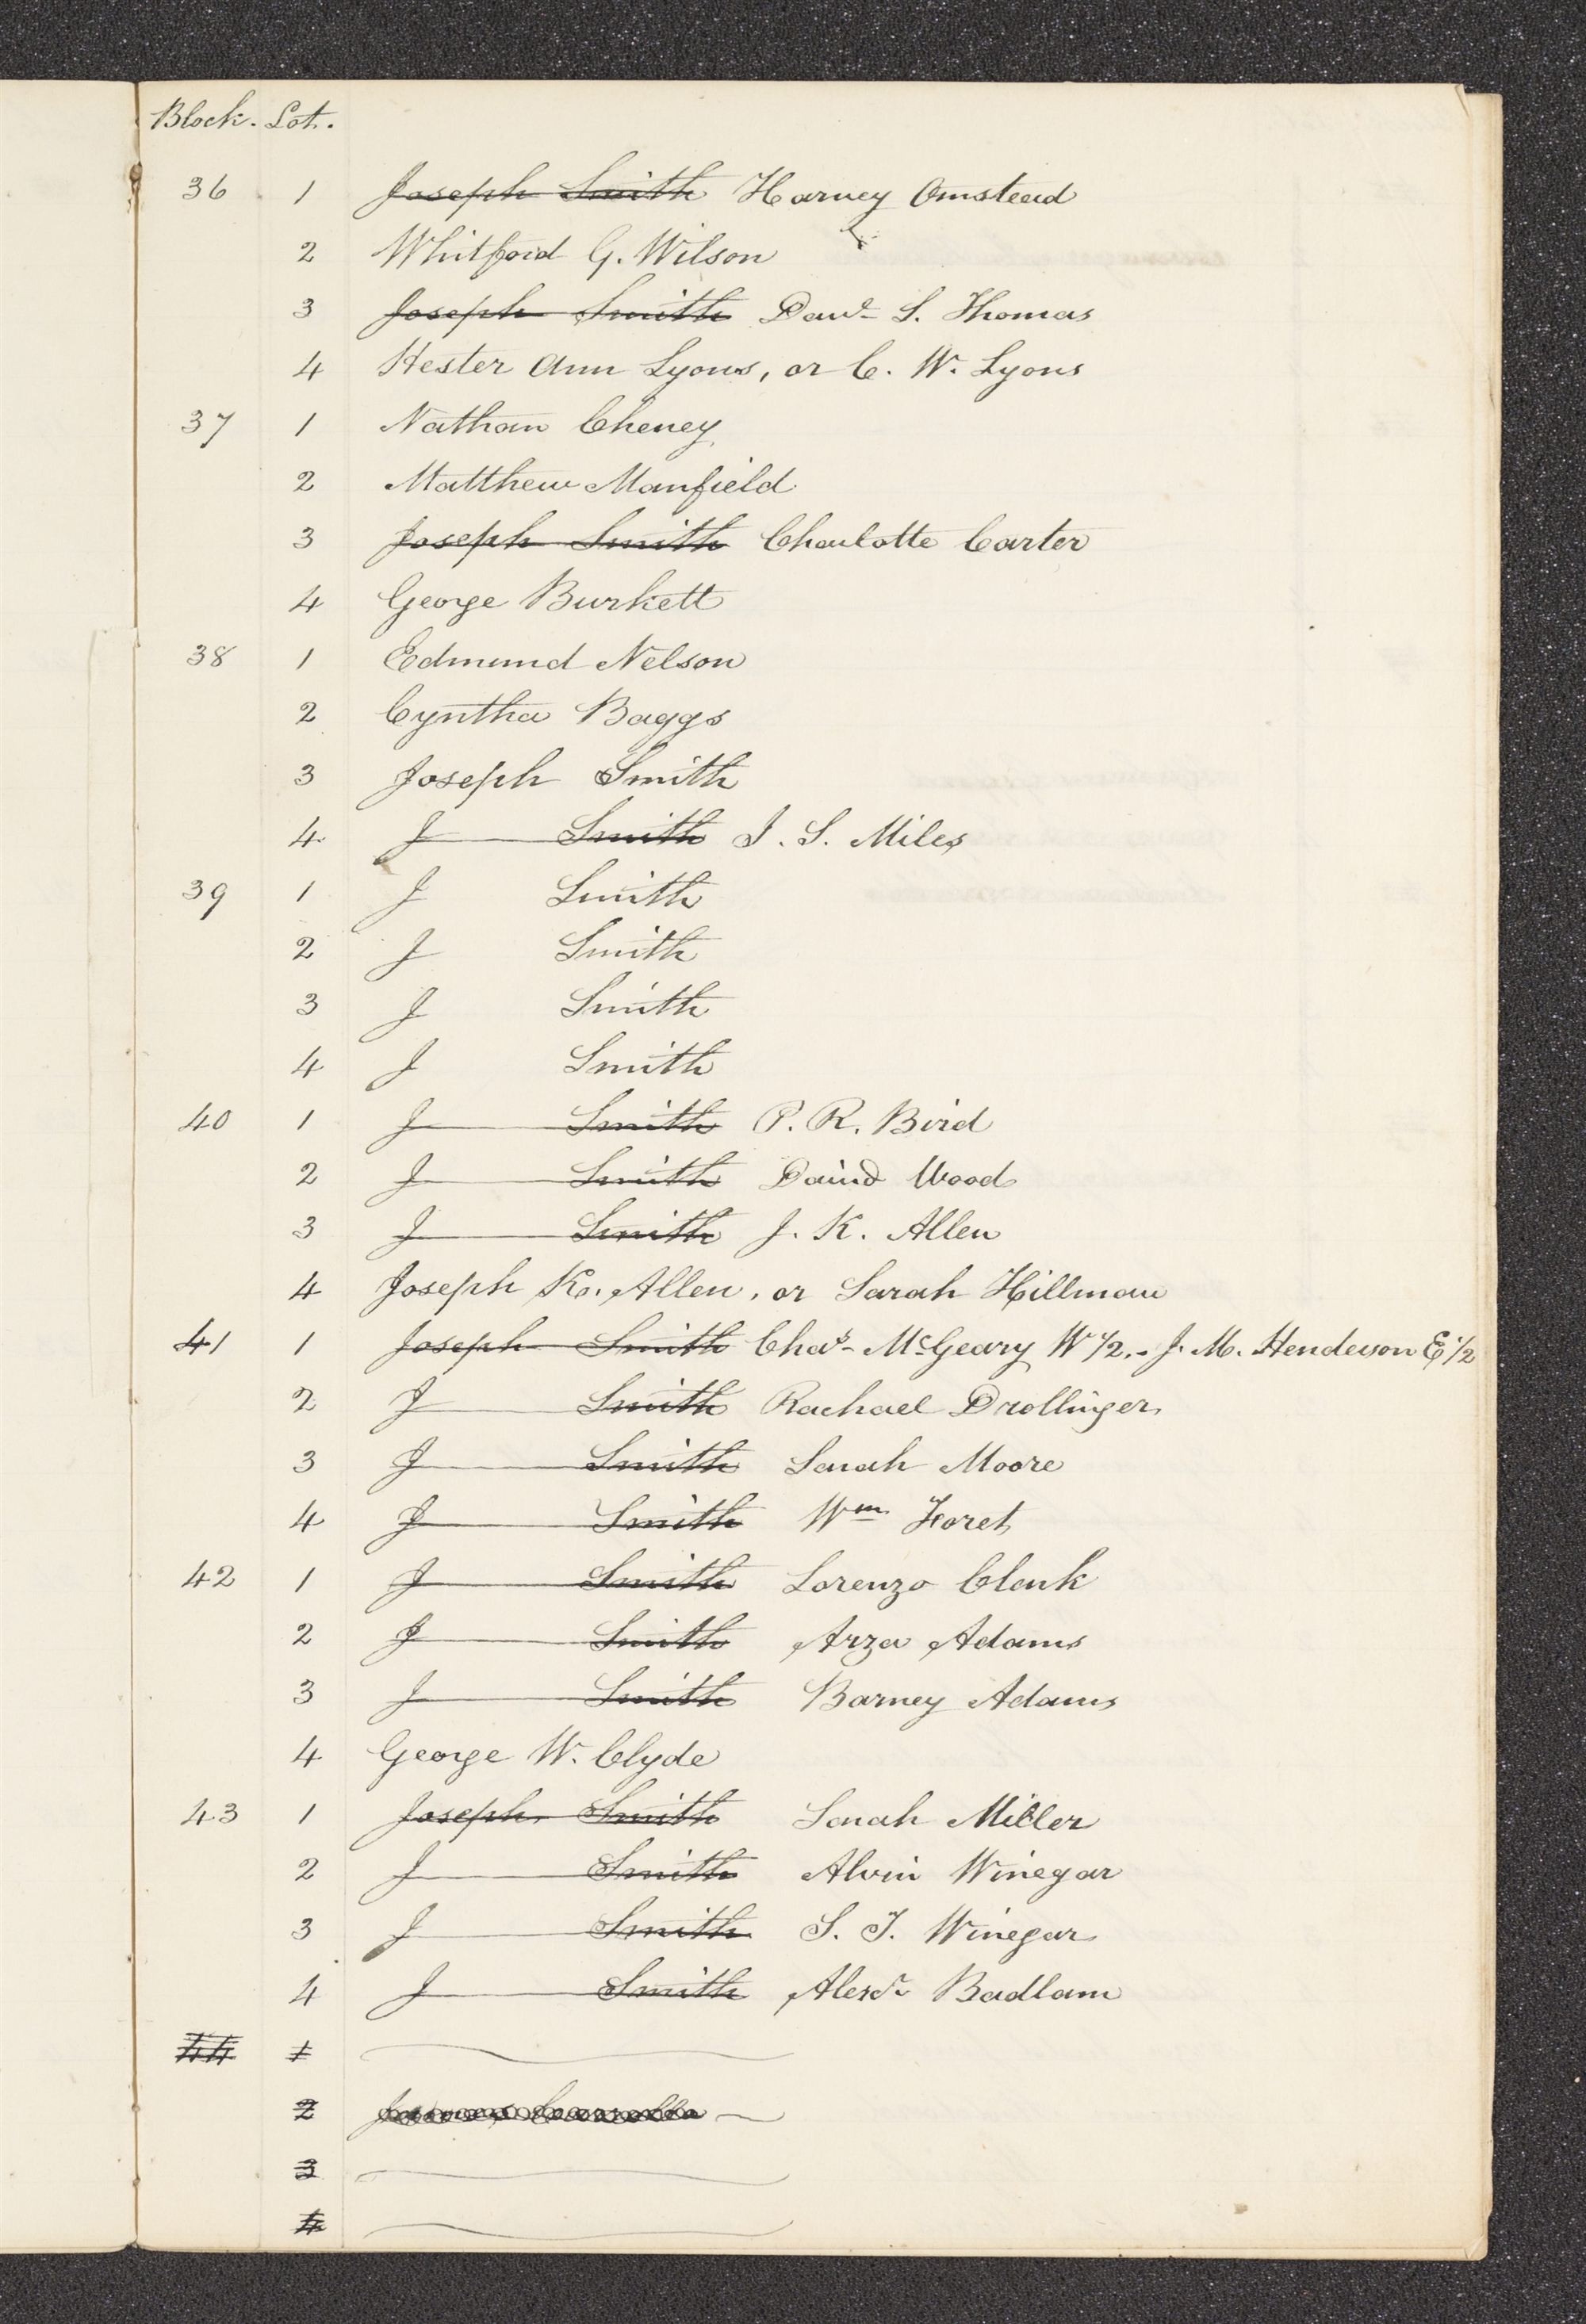 Block. Lot.
36 1 Joseph Smith Harvey Omstead
2 Whitford G. Wilson
3 Joseph Smith Davd. S. Thomas
4 Hester Ann Lyons, or C. W. Lyons
37 1 Nathan Cheney
2 Matthew Manfield
3 Joseph Smith Charlotte Carter
4 George Burkett
38 1 Edmund Nelson
2 Cyntha Baggs
3 Joseph Smith
4 J Smith I. S. Miles
39 1 J Smith
2 J Smith
3 J Smith
4 J Smith
40 1 J Smith P. R. Bird
2 J Smith David Wood
3 J Smith J. K. Allen
4 Joseph K. Allen, or Sarah Hillman
41 1 Joseph Smith Chas. McGeary W 1/2. - J. M. Henderson E 1/2
2 J Smith Rachael Drollinger
3 J Smith Sarah Moore
4 J Smith Wm Foret
42 1 J Smith Lorenzo Clark
2 J Smith Arza Adams
3 J Smith Barney Adams
4 George W. Clyde
43 1 Joseph Smith Sarah Miller
2 J Smith Alvin Winegar
3 J Smith S. T. Winegar
4 J Smith Alexr Badlam
44 1
2
3
4